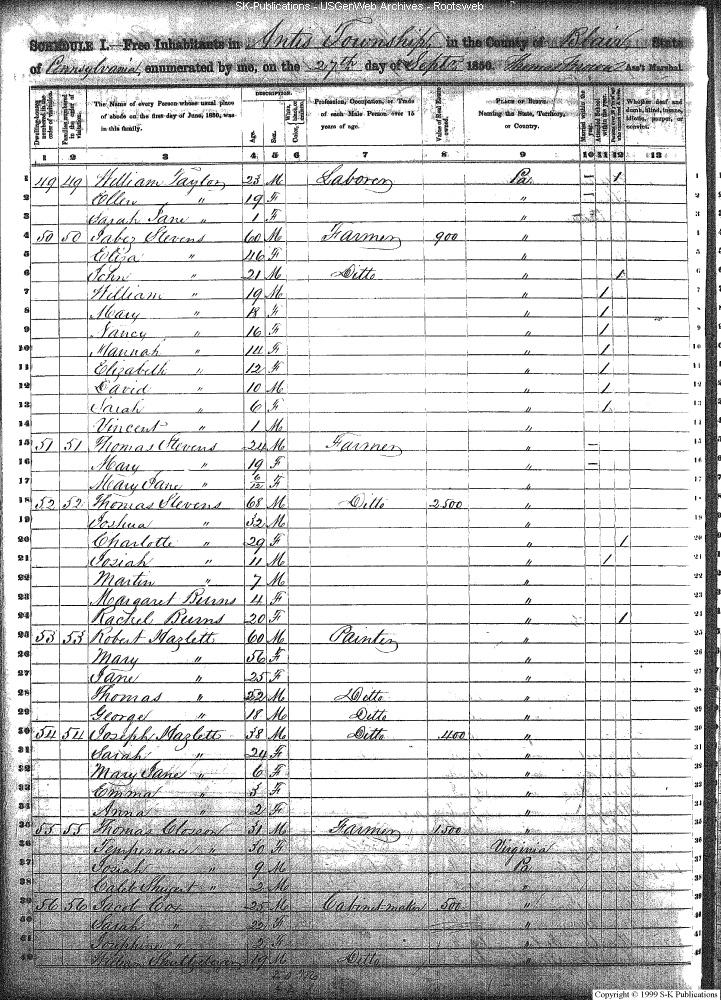 SK-Publications - USGenWeb Archives - Rootsweb
SCHEDULE I.—Free Inhabitants in Antis Township, in the County of Blair, State
of Pennsylvania, enumerated by me, on the 27th day of Septr 1850. Ass't Marshal
Dwelling-houses numbered in the order of visitation. Families numbered in the order of visitation. The Name of every Person whose usual place of abode on the first day of June, 1850, was in this family. DESCRIPTION. Age. Sex. Color, Profession, Occupation, or Trade of each Male Person over 15 years of age. Value of Real Estate owned. PLACE OF BIRTH. Naming the State, Territory, or Country. Married within the year. Attended School within the year. Whether deaf and dumb, blind, insane, idiotic, pauper, or convict.
1 2 3 4 5 6 7 8 9 10 11 12 13
1 49 49 William Taylor 23 M Laborer Pa — 1 1
2 Ellen " 19 F " — 2
3 Sarah Jane " 1 F " 3
4 50 50 Jabez Stevens 60 M Farmer 900 " 4
5 Eliza " 46 F "
6 John " 21 M Ditto " 1
7 William " 19 M " 1 7
8 Mary " 18 F " 1 8
9 Nancy " 16 F " 1 9
10 Hannah " 14 F " 1 10
11 Elizabeth " 12 F " 1 11
12 David " 10 M " 1 12
13 Sarah " 6 F " 1 13
14 Vincent " 1 M " 14
15 51 51 Thomas Stevens 24 M Farmer " — 15
16 Mary " 19 F " — 16
17 Mary Jane " 6/12 F " 17
18 52 52 Thomas Stevens 68 M Ditto 2500 " 18
19 Joshua " 32 M " 19
20 Charlotte " 29 F " 1 20
21 Josiah " 11 M " 1 21
22 Martin " 7 M " 22
23 Margaret Burns 4 F " 23
24 Rachel Burns 20 F " 1 24
25 53 53 Robert Hazlett 60 M Painter " 25
26 Mary " 56 F " 26
27 Jane " 25 F " 27
28 Thomas " 22 M Ditto " 28
29 George " 18 M Ditto " 29
30 54 54 Joseph Hazlett 38 M Ditto 400 "
31 Sarah " 24 F "
32 Mary Jane " 6 F "
33 Emma " 3 F "
34 Anna " 2 F "
35 55 55 Thomas Closson 31 M Farmer 1500 "
36 Temperance " 30 F Virginia
37 Josiah " 9 M Pa
38 Caleb " 2 M "
39 56 56 Jacob Cox 25 M Cabinet maker 500 "
40 Sarah " 22 F "
41 Josephine " 2 F "
42 William 19 M Ditto "
Copyright © 1999 S-K Publications